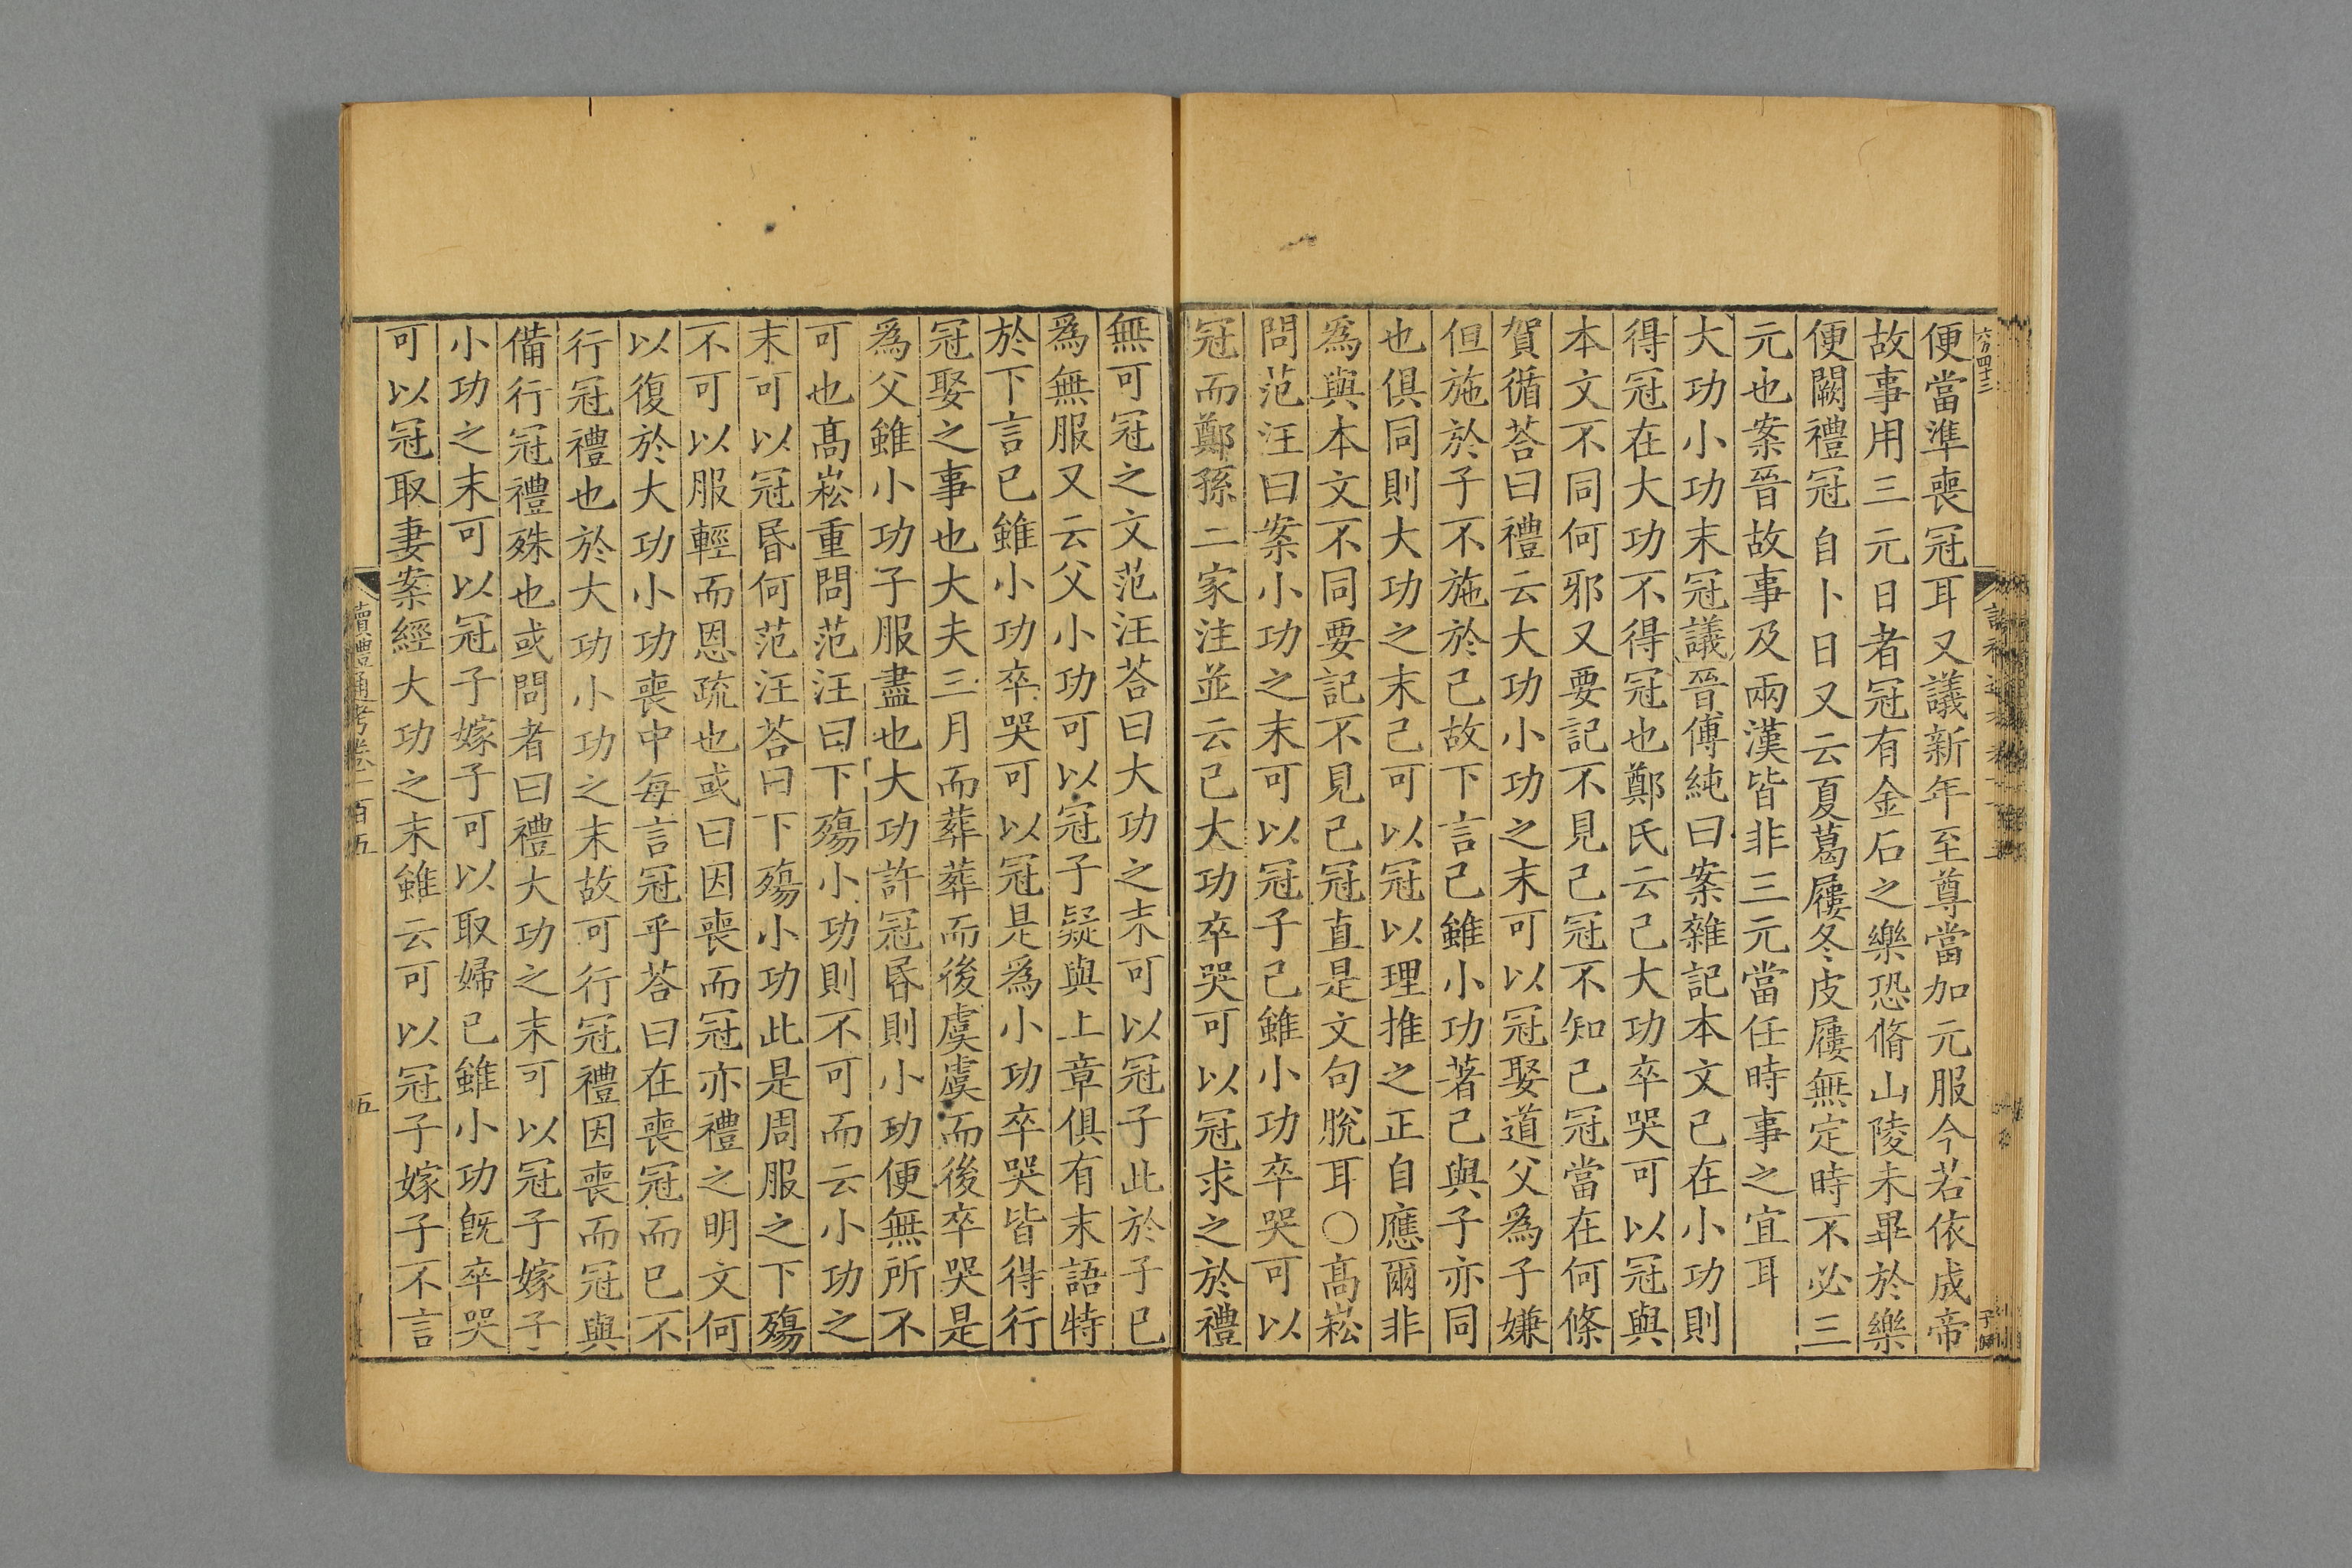 便當準喪冠耳又議新年至尊當加元服今若依成帝
故事用三元日者冠有金石之樂恐脩山陵未畢於樂
便闕禮冠自卜日又云夏葛屨冬皮屨無定時不必三
元也案晉故事及兩漢皆非三元當任時事之宜耳
大功小功末冠議晉傅純曰案雜記本文已在小功則
得冠在大功不得冠也鄭氏云己大功卒哭可以冠與
本文不同何邪又要記不見己冠不知己冠當在何條
賀循荅曰禮云大功小功之末可以冠娶道父爲子嫌
但施於子不施於己故下言己雖小功著己與子亦同
也俱同則大功之末己可以冠以理推之正自應爾非
爲與本文不同要記不見己冠直是文句脫耳○高崧
問范汪曰案小功之末可以冠子己雖小功卒哭可以
冠而鄭孫二家注並云己大功卒哭可以冠求之於禮
無可冠之文范汪荅曰大功之末可以冠子此於子已
爲無服又云父小功可以冠子疑與上章俱有末語特
於下言已雖小功卒哭可以冠是爲小功卒哭皆得行
冠娶之事也大夫三月而葬葬而後虞虞而後卒哭是
爲父雖小功子服盡也大功許冠昏則小功便無所不
可也高崧重問范汪曰下殤小功則不可而云小功之
末可以冠昏何范汪荅曰下殤小功此是周服之下殤
不可以服輕而恩疏也或曰因喪而冠亦禮之明文何
以復於大功小功喪中每言冠乎荅曰在喪冠而已不
行冠禮也於大功小功之末故可行冠禮因喪而冠與
備行冠禮殊也或問者曰禮大功之末可以冠子嫁子
小功之末可以冠子嫁子可以取婦己雖小功旣卒哭
可以冠取妻案經大功之末雖云可以冠子嫁子不言
讀禮通考卷一百五
五